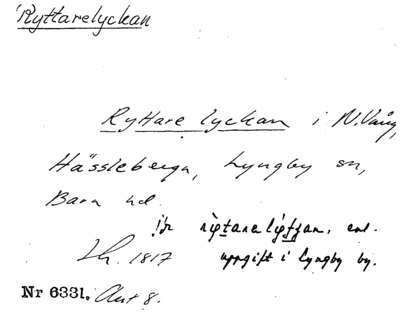 Ryttarelyckan
Ryttare lyckan i N. Vång,
Hässleberga, Lyngby sn,
Bara hd.
enl.
Lh. 1817 uppgift i Lyngby by.
Nr 6331. Akt 8.